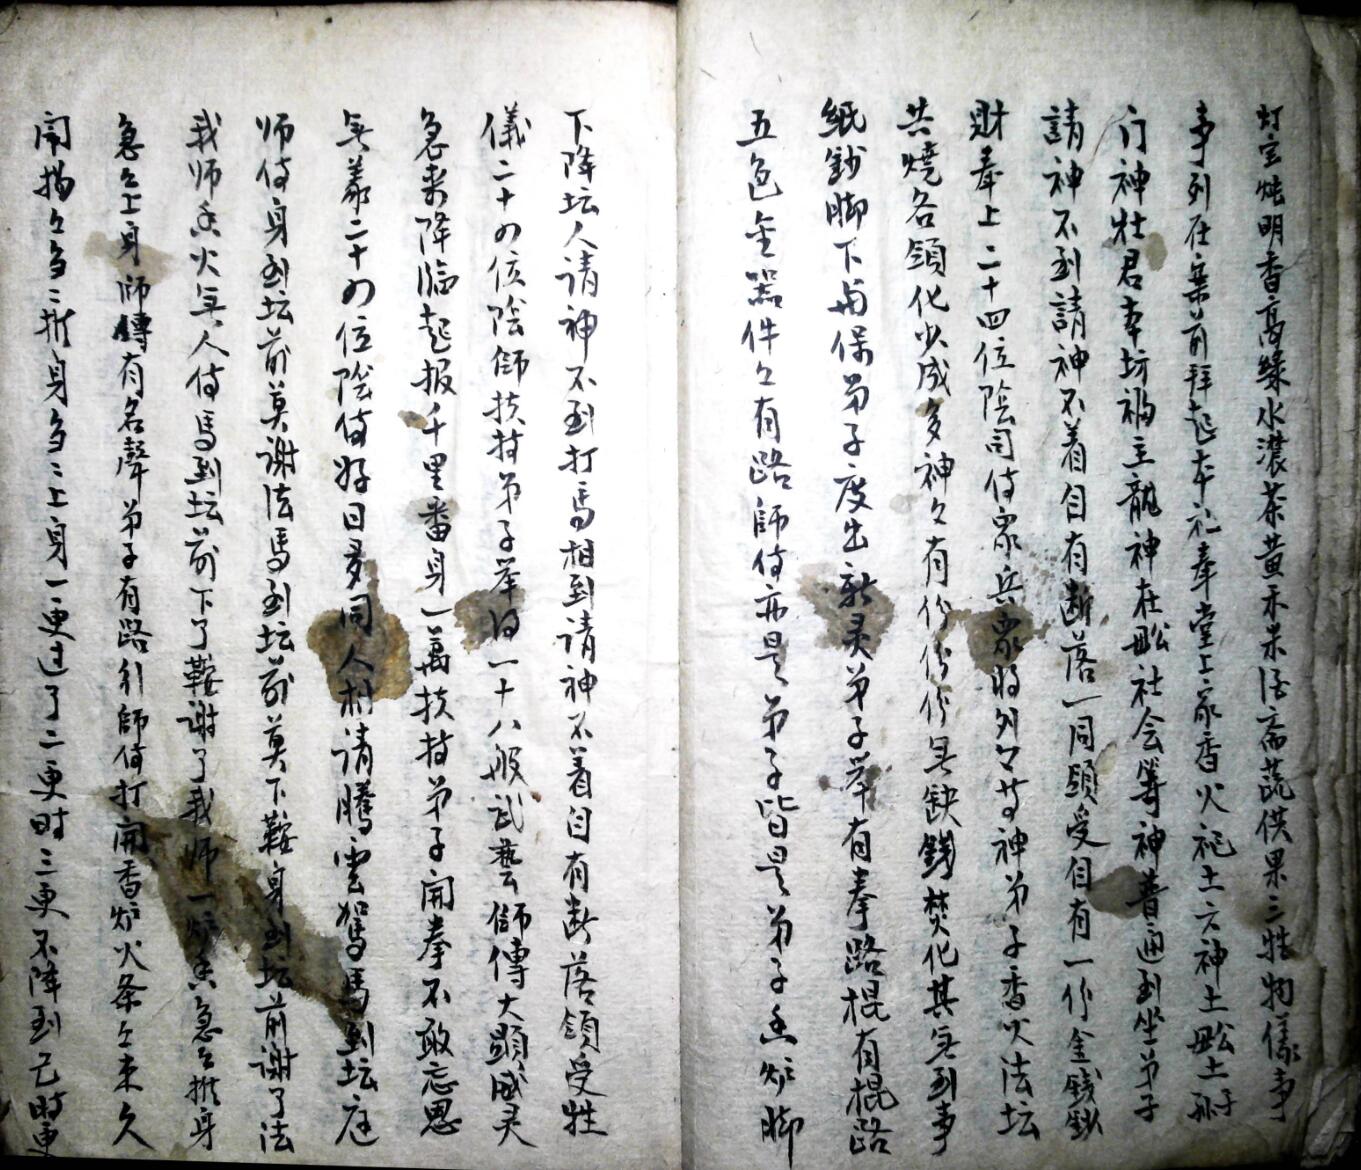 灯宝烛明香高緑水濃茶黄禾米活斋蔬供果三牲物儀事
事列在案前拜起本礼奉堂上家香火祀土六神土毑土子孙
门神灶君本坊福主龍神在毑社会等神普通到坐弟子
請神不到請神不着自有断落一同頭受自有一份金钱鈔
財奉上二十四位陰司侍眾兵眾将列々等神弟子香火法坛
共燒各領化少成多神々有份份份無缺錢焚化其無到事
紙鈔脚下与保弟子度出新灵弟子举有拳路棍有棍路
五色金器件々有路師侍亦是弟子皆是弟子香炉脚
下降坛人请神不到打馬相到请神不着自有断落領受牲
儀二十四位陰師扶持弟子举得一十八般武藝師傅大顯威灵
急来降临起报千里番身一萬扶持弟子開拳不敢忘恩
無義二十四位陰侍好日多同人相请騰雲駕馬到坛庭
师侍身到坛前莫谢法馬到坛前莫下鞍身到坛前謝了法
我师香火無人侍馬到坛前下了鞍谢了我师一炉香急々推身
急々上身師傅有名聲弟子有路引師侍打開香炉火条々来久
開揚々多二推身多二上身一更过了二更时三更不降到已时更